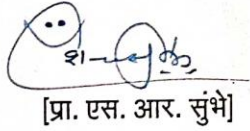 [प्रा. एस. आर. सुंभे]